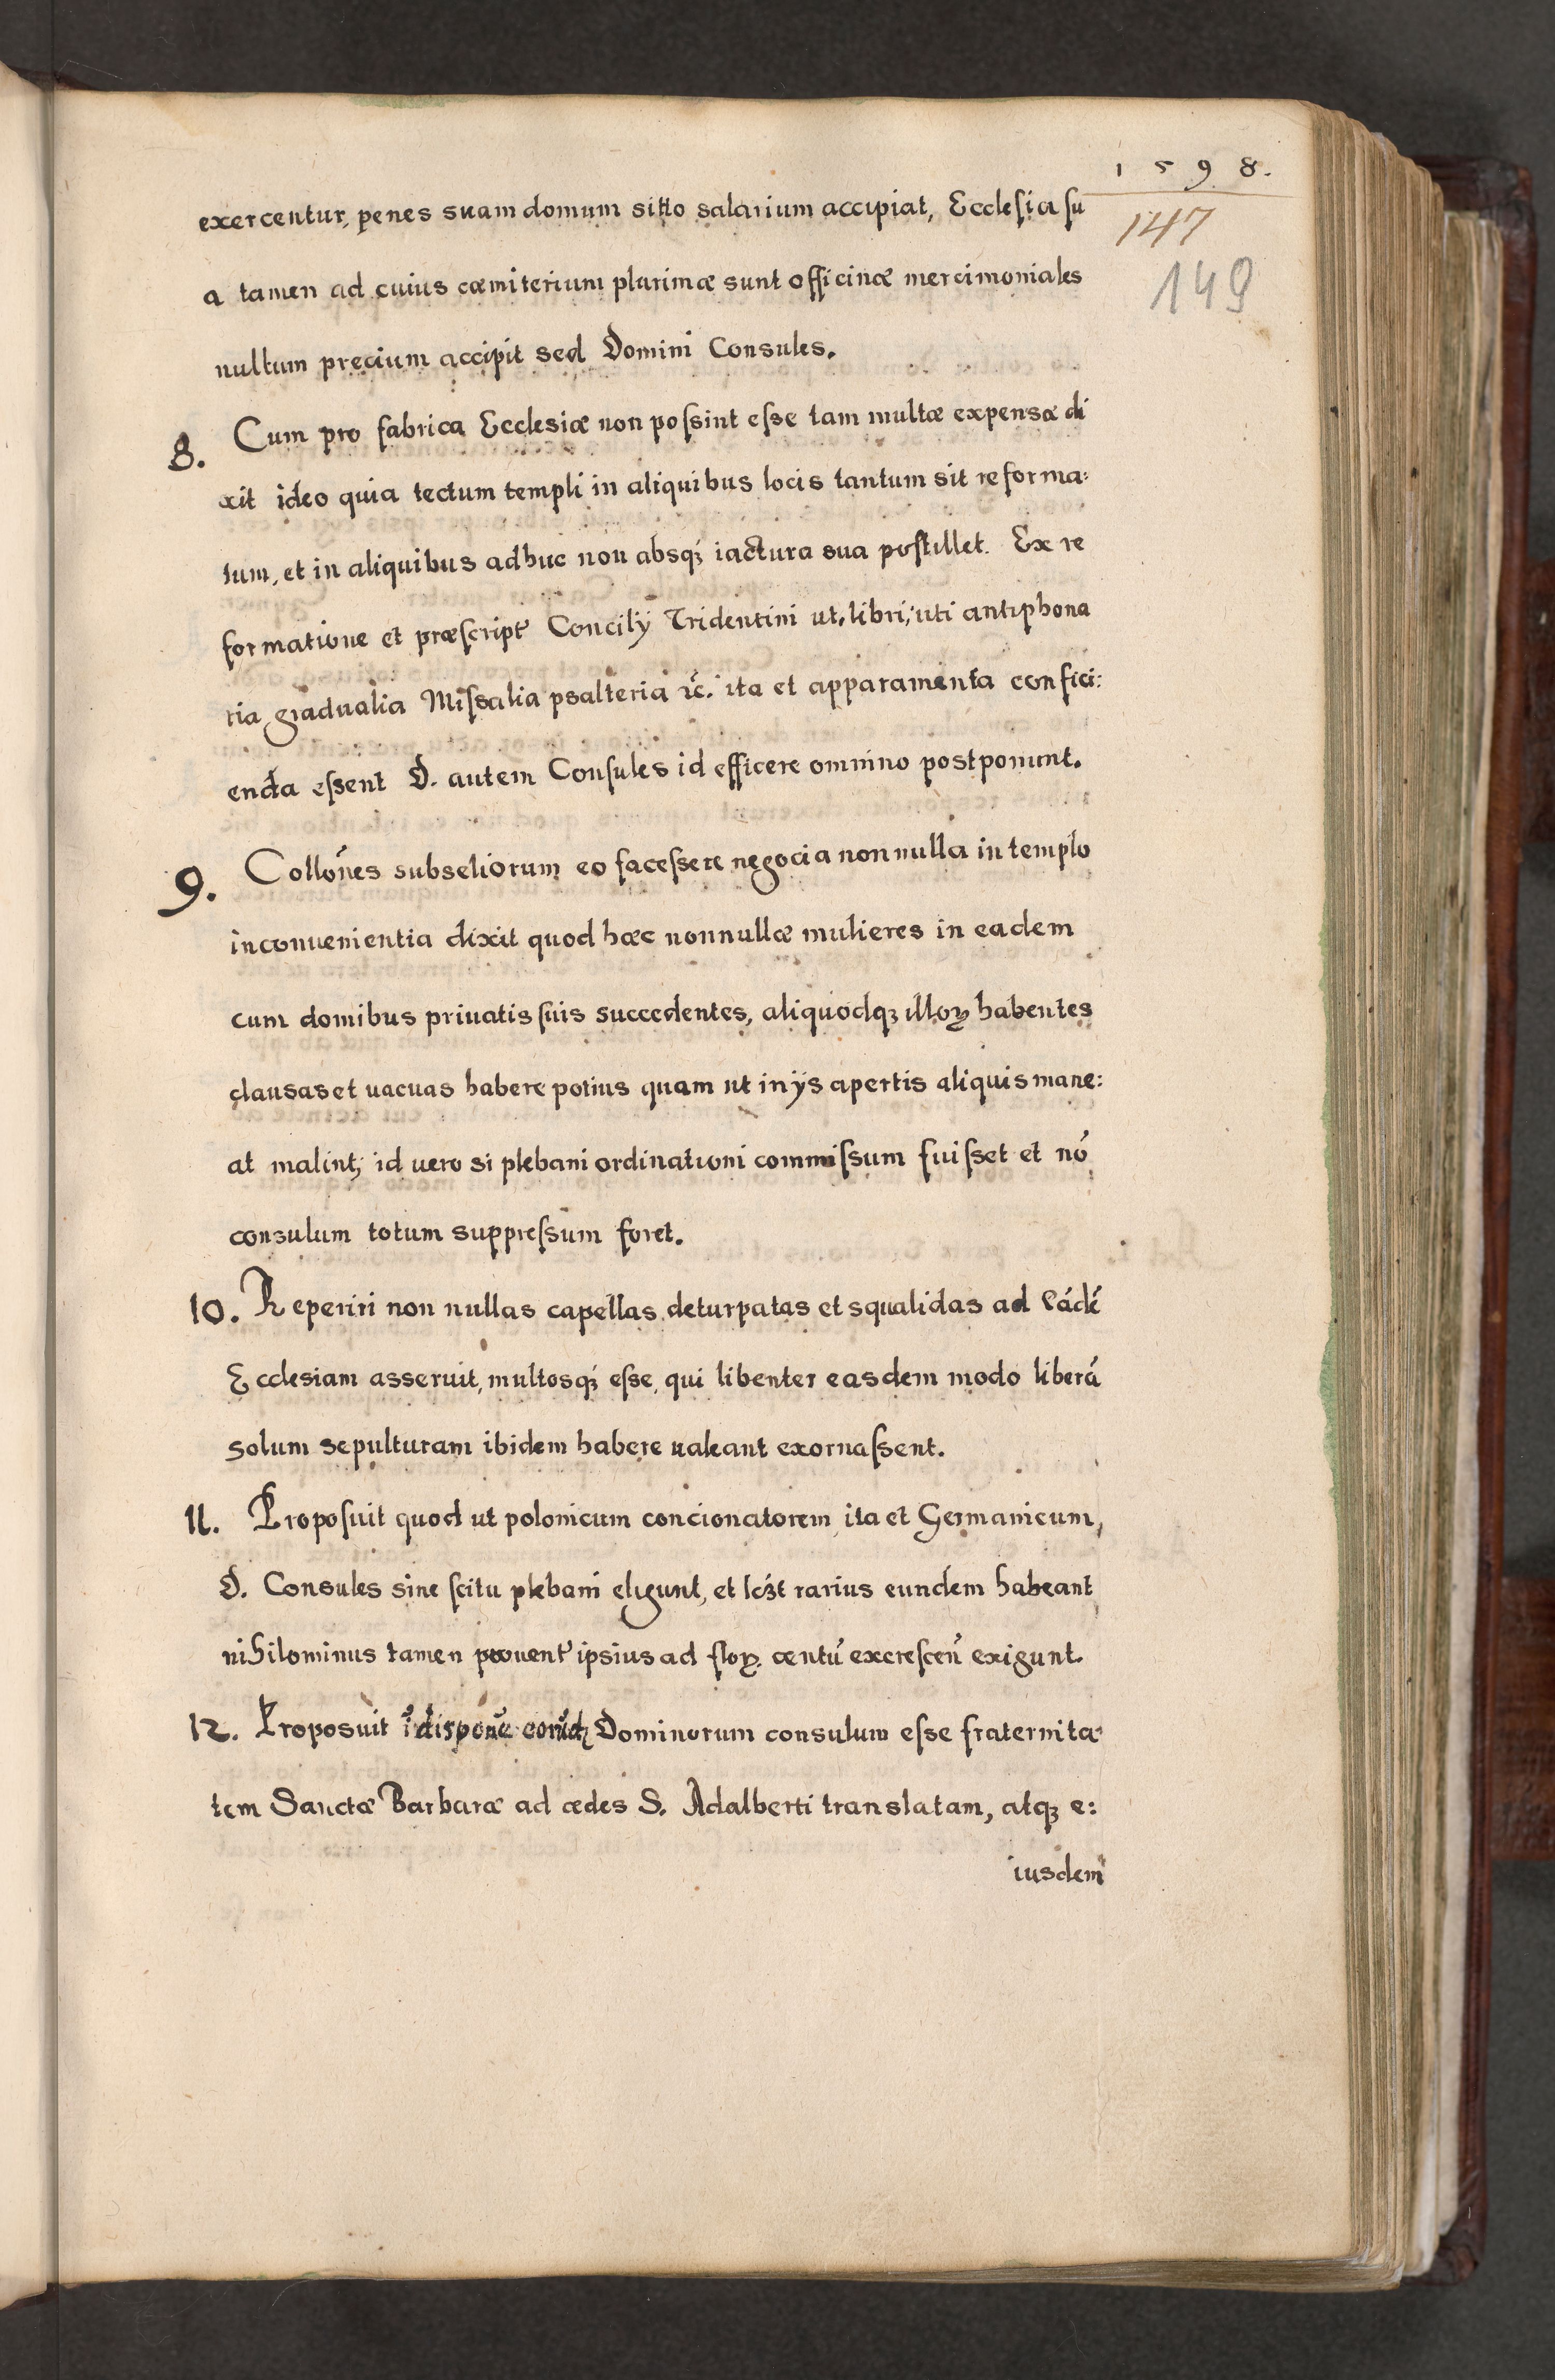 1598.
147
149
exercentur, penes suam domum sitto salarium accipiat, Ecclesia su
a tamen ad cuius cæmiterium plurimæ sunt officinæ mercimoniales
nullum precium accipit sed Domini Consules.
8. Cum pro fabrica Ecclesiæ non possint esse tam multæ expensæ di
xit ideo quia tectum templi in aliquibus locis tantum sit reforma:
tum, et in aliquibus adhuc non absqꝫ iactura sua postillet. Ex re
formatione et præscript' Concilÿ Tridentini ut, libri, uti antiphona
ria, gradualia Missalia psalteria ꝛc̃. ita et apparamenta confici:
enda essent D. autem Consules id efficere omnino postponunt.
9. Collões subseliorum eo facessere negocia nonnulla in templo
inconuenientia dixit quod hæc nonnullæ mulieres in eadem
cum domibus priuatis suis succedentes, aliquodqꝫ illoꝝ habentes
clausas et uacuas habere potius quam ut in ÿs apertis aliquis mane:
at malint, id uero si plebani ordinationi commissum fuisset et nõ
consulum totum suppressum foret.
10. Reperiri non nullas capellas deturpatas et squalidas ad eãdẽ
Ecclesiam asseruit, multosqꝫ esse, qui libenter easdem modo liberã
solum sepulturam ibidem habere ualeant exornassent.
11. Proposuit quod ut polonicum concionatorem ita et Germanicum,
D. Consules sine scitu plebani eligunt, et lcꝫt rarius eundem habeant
nihilominus tamen prouent' ipsius ad floꝝ. centũ excrescen̄ exigunt.
12. Proposuit ĩ dispone eorũdꝫ Dominorum consulum esse fraternita
tem Sanctæ Barbaræ ad ædes S. Adalberti translatam, atqꝫ e:
iusdem